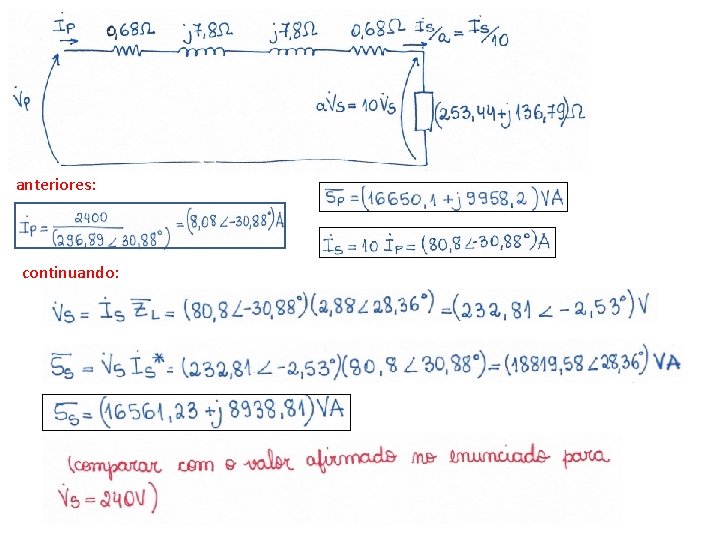 İp 0,68Ω j7,8Ω j7,8Ω 0,68Ω İs/a = İs/10
V̇p aV̇s = 10V̇s (253,44+j136,79)Ω
anteriores:
S̅p = (16650,1 + j 9958,2) VA
İp = 2400/(296,89∠30,88°) = (8,08∠-30,88°)A
İs = 10 İp = (80,8∠-30,88°)A
continuando:
V̇s = İs Z̅L = (80,8∠-30,88°)(2,88∠28,36°) = (232,81∠-2,53°)V
S̅s = V̇s İs* = (232,81∠-2,53°)(80,8∠30,88°) = (18819,58∠28,36°) VA
S̅s = (16561,23 + j 8938,81) VA
(comparar com o valor afirmado no enunciado para
V̇s = 240V)